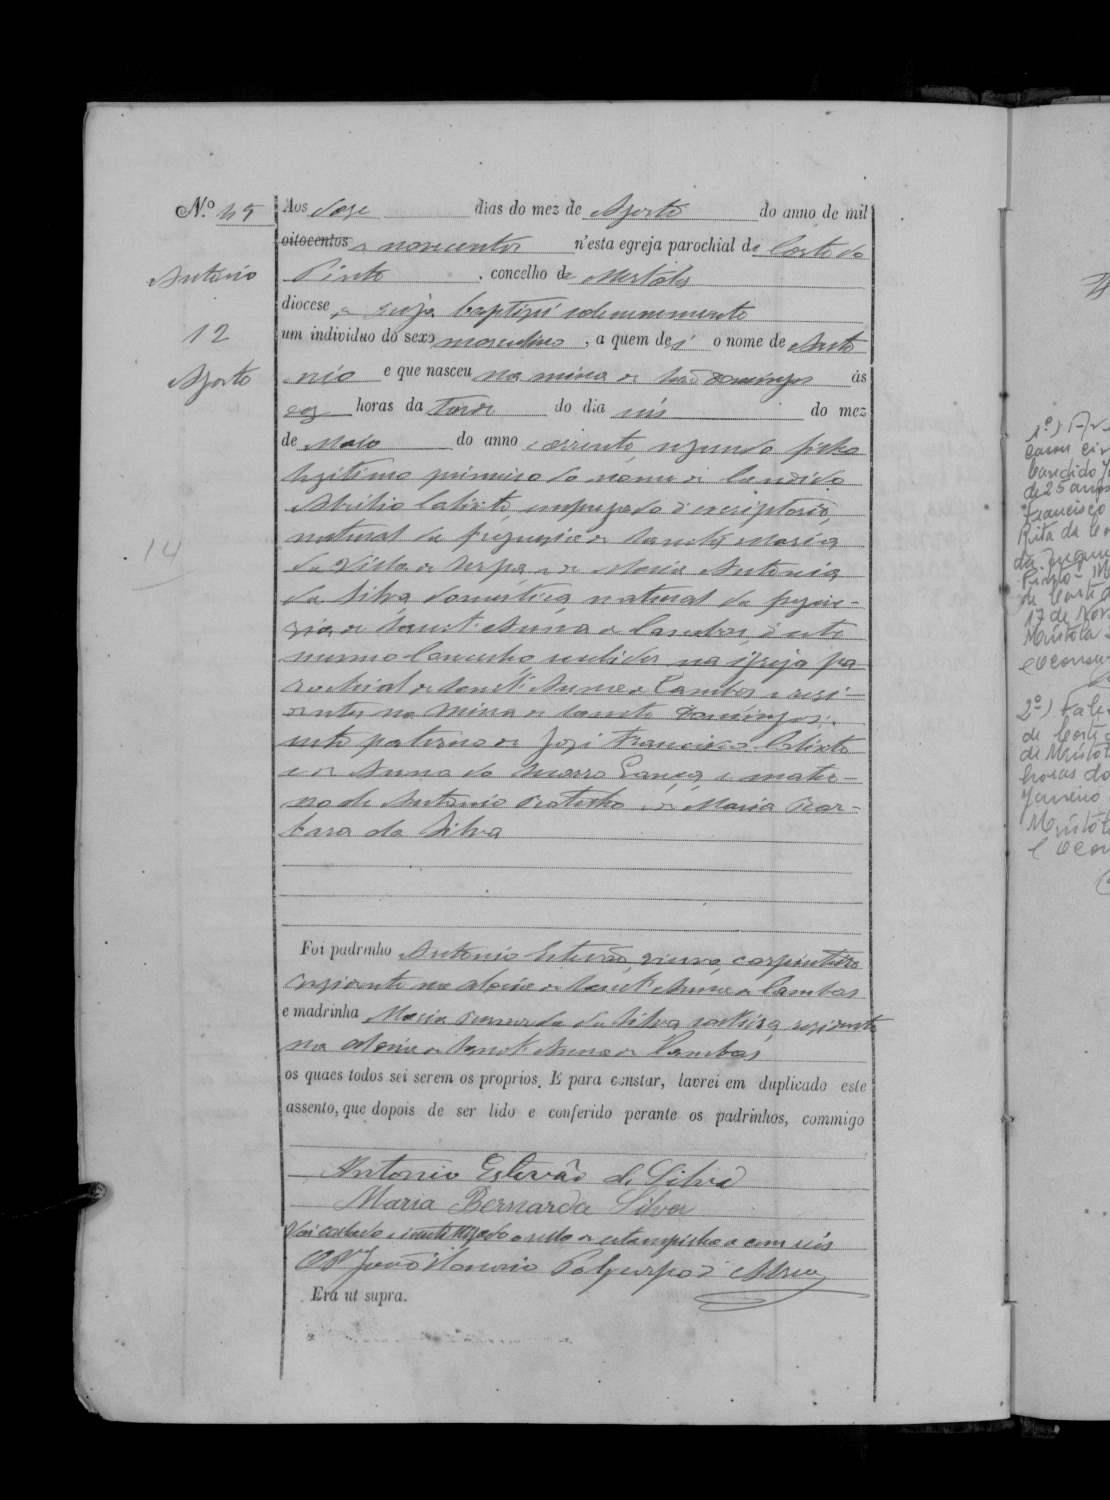 N.º 45
Aos doze dias do mez de Agosto do anno de mil
oitocentos e novecentos n'esta egreja parochial de Corte do
Antonio
Pinto, concelho de Mertola
diocese e Beja baptisei solemnemente
12
um individuo do sexo masculino, a quem dei o nome de Anto
Agosto
nio e que nasceu na mina de São Domingos ás
horas da tarde do dia seis do mez
de Maio do anno corrente, segundo filho
legitimo primeiro do nome de Candido
Abilio Calixto, empregado d'escriptorio,
natural da freguezia de Santa Maria
14
da Villa de Serpa e de Maria Antonia
da Silva domestica, natural da fregue-
zia de Sant'Anna de Cambas, d'este
mesmo Concelho, recebidos na igreja pa
rochial de Sant'Anna de Cambas e resi-
dentes na Mina de Santo Domingos;
neto paterno de José Francisco Calixto
e de Anna do Graça e mater-
no de Antonio e de Maria Bar-
bara da Silva
Foi padrinho Antonio Estevão, viuvo, carpinteiro
residente na aldeia de Sant'Anna de Cambas
e madrinha Maria Bernarda da Silva solteira, residente
na aldeia de Sant'Anna de Cambas
os quaes todos sei serem os proprios. E para constar, lavrei em duplicado este
assento, que depois de ser lido e conferido perante os padrinhos, commigo
Antonio Estevão da Silva
Maria Bernarda Silva
Vai collado e inutilizado o sello de estampilha de cem reis
João Honorio d'Abreu
Era ut supra.
1.º)
Candido
de 25 annos
Francisco
Rita da
17 de Nov
Mértola
2.º) Fale
de Corte
de Mértola
horas do
Janeiro
Mértola